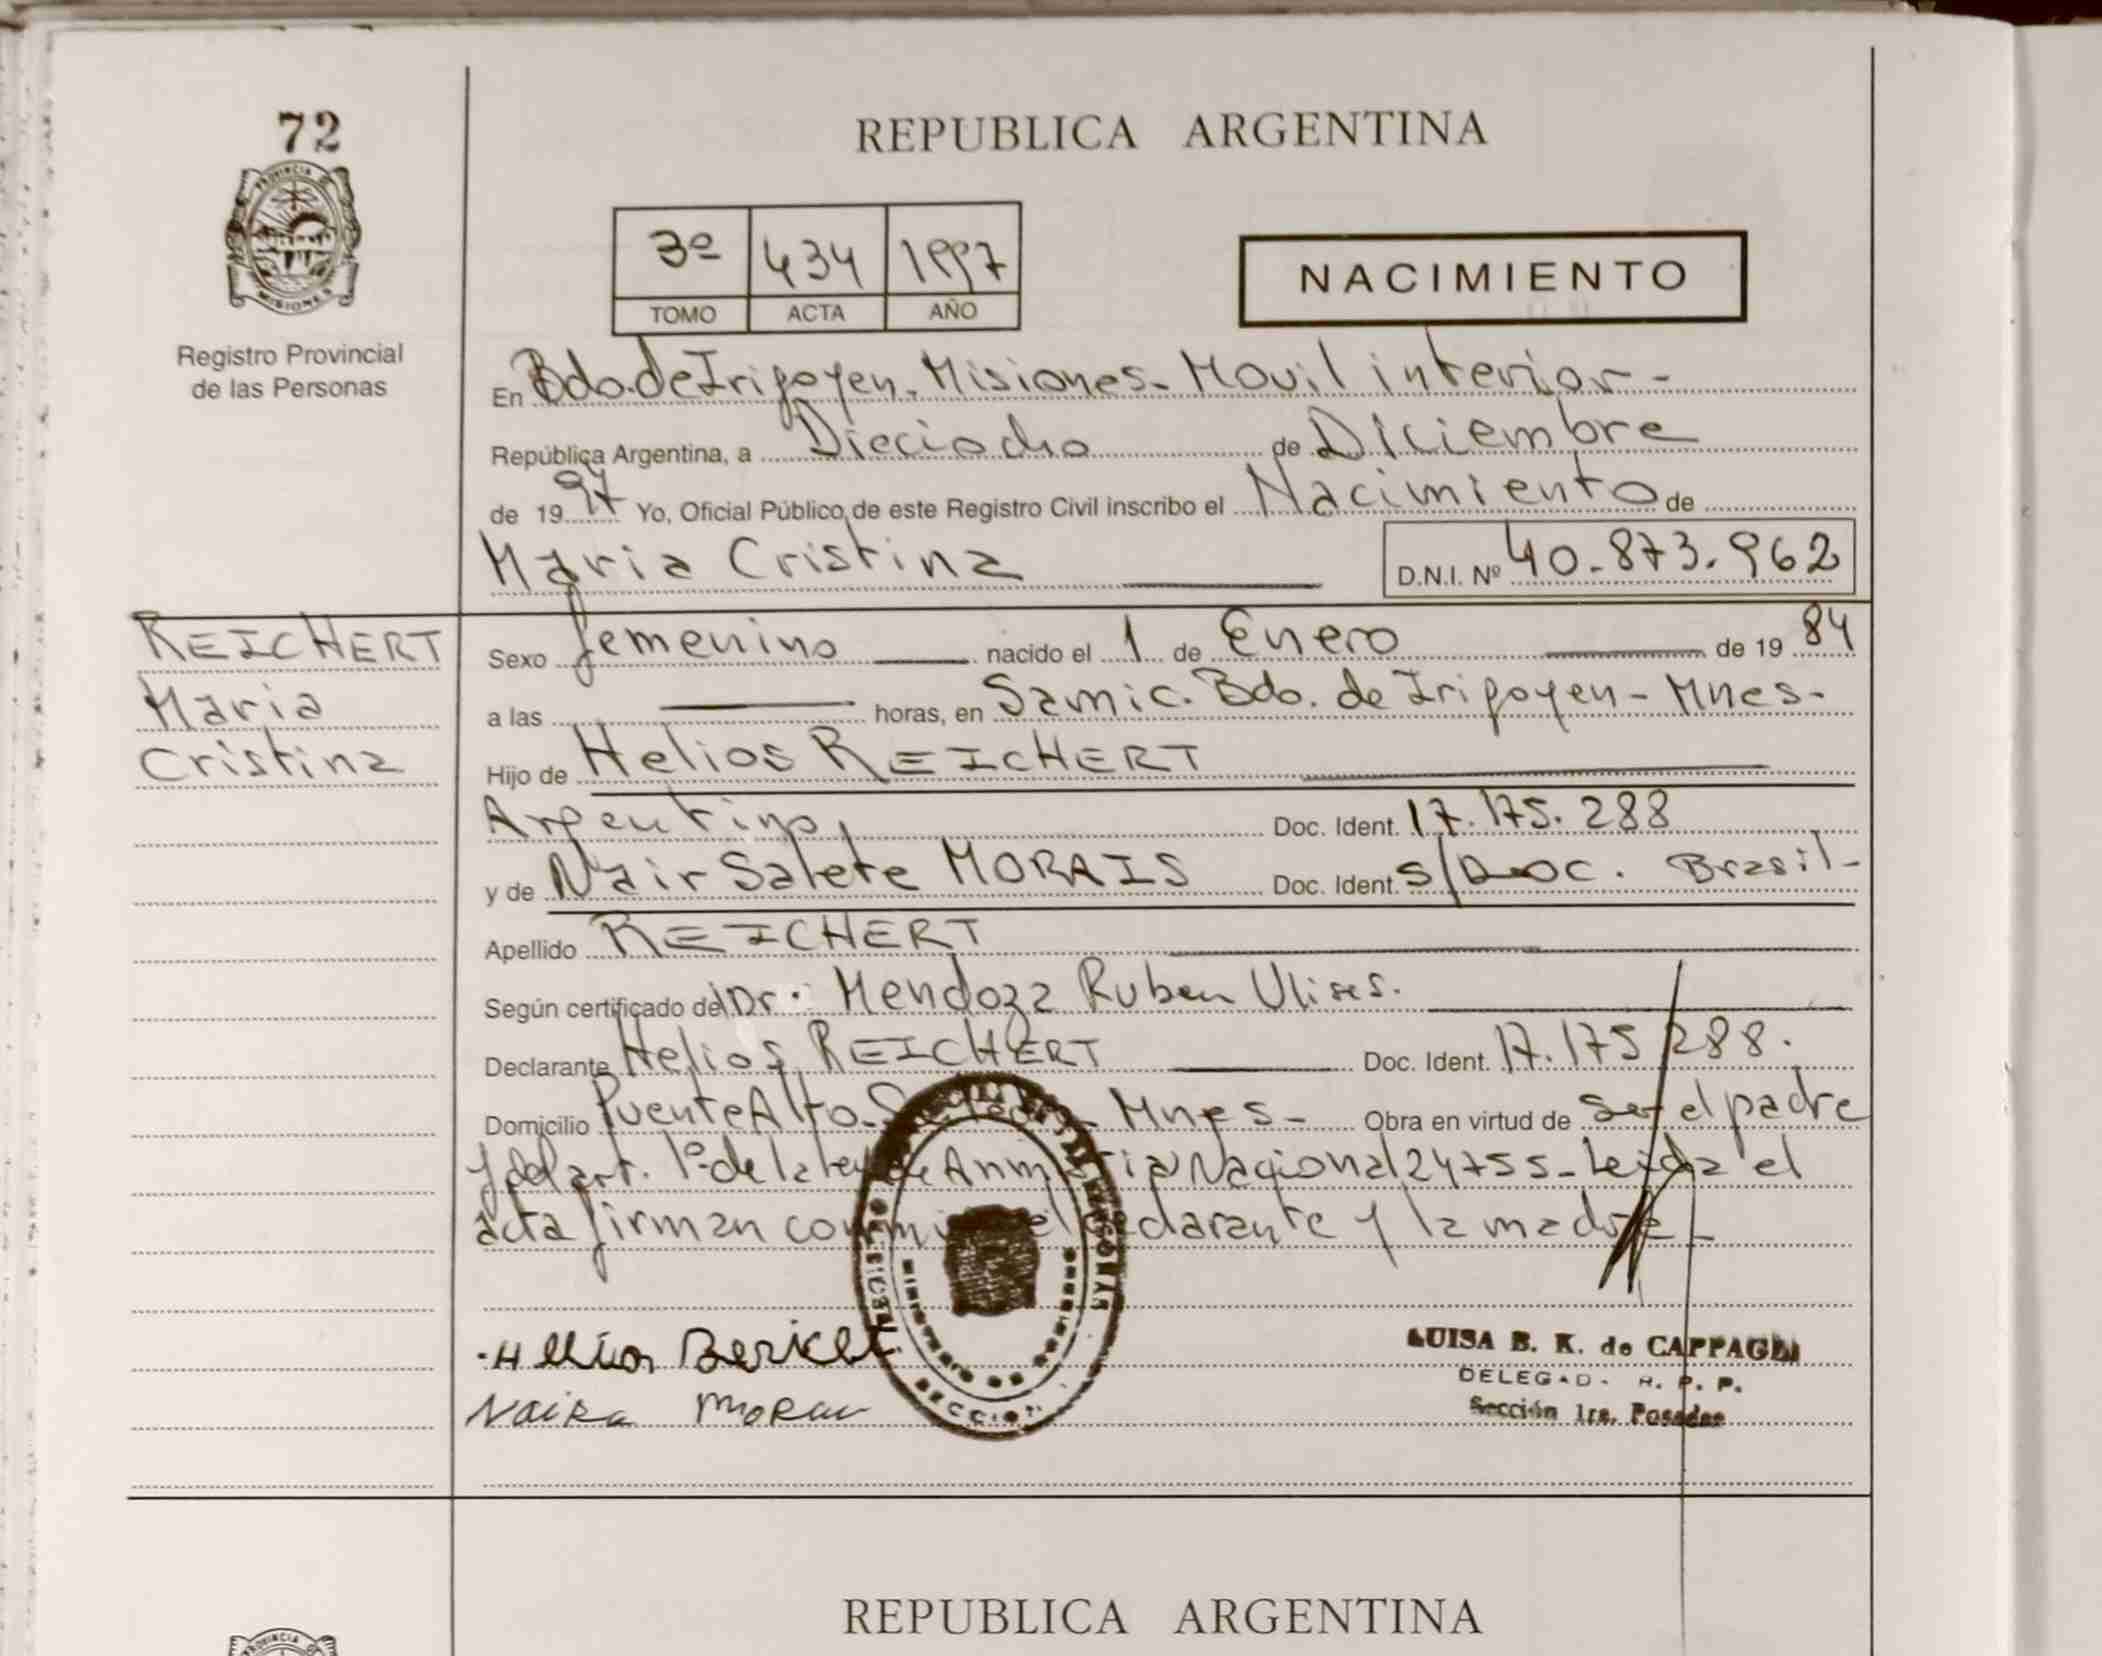 72
PROVINCIA DE
MISIONES
Registro Provincial
de las Personas
REPUBLICA ARGENTINA
3º 434 1997
TOMO ACTA AÑO
NACIMIENTO
En Bdo. de Irigoyen. Misiones. Movil interior-
República Argentina, a Dieciocho de Diciembre
de 1997 Yo, Oficial Público, de este Registro Civil inscribo el Nacimiento de
Maria Cristina D.N.I. Nº 40.873.962
REICHERT
Maria
Cristina
Sexo femenino nacido el 1 de Enero de 1984
a las horas, en Samic. Bdo. de Irigoyen - Mnes-
Hijo de Helios REICHERT
Argentino, Doc. Ident. 17.175.288
y de Nair Salete MORAIS Doc. Ident. s/Doc. Brasil-
Apellido REICHERT
Según certificado del Dr. Mendoza Ruben Ulises.
Declarante Helios REICHERT Doc. Ident. 17.175.288.
Domicilio Puente Alto - Mnes- Obra en virtud de ser el padre
y del art. 1º de la ley de Nacional 24755- Leida el
acta firman el declarante y la madre-
Naira
LUISA B. K. de
DELEGAD. R. P. P.
Sección 1ra. Posadas
SECCION
REPUBLICA ARGENTINA
PROVINCIA DE